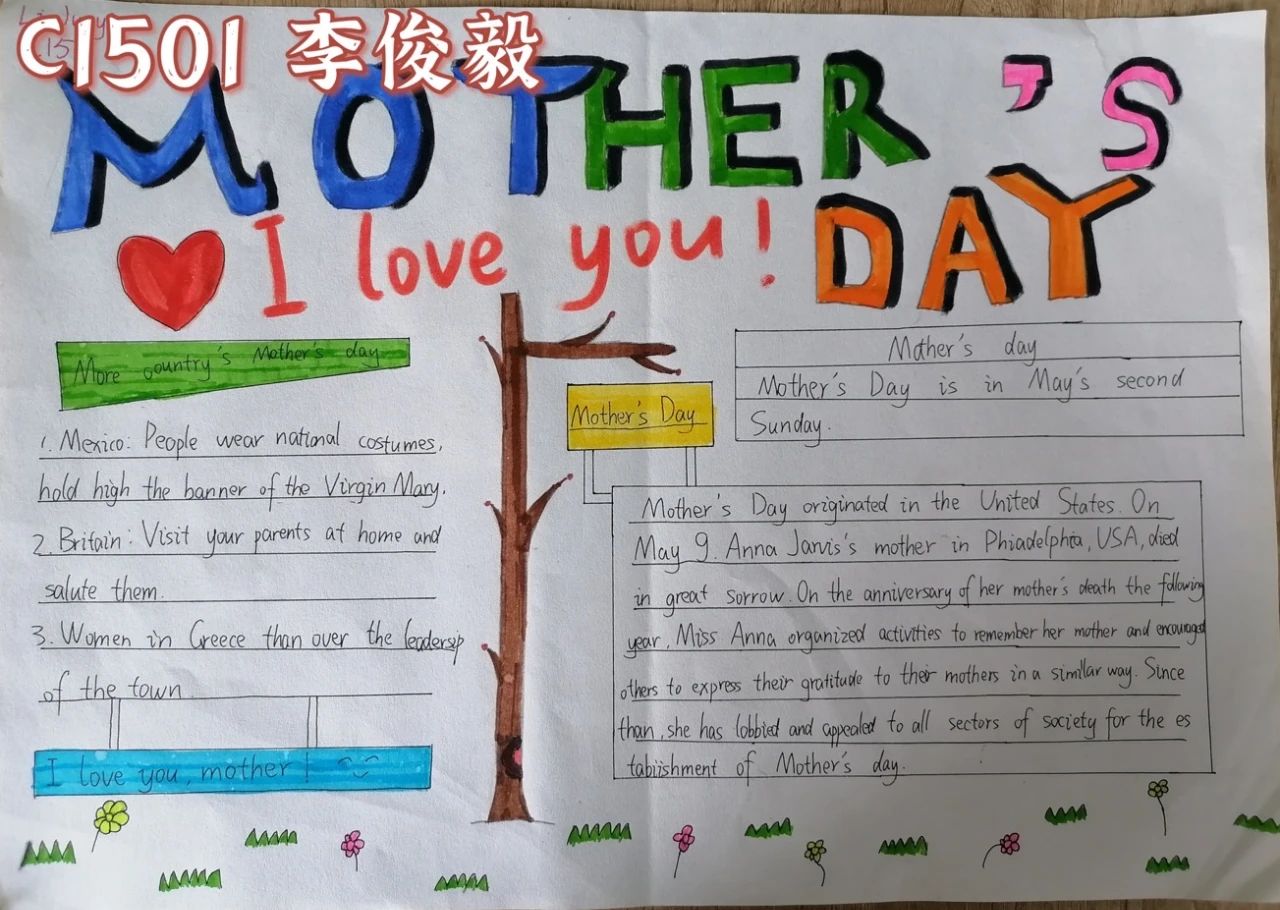 C1501 李俊毅
MOTHER'S
I love you! DAY
More country's Mother's day
1. Mexico: People wear national costumes,
hold high the banner of the Virgin Mary.
2. Britain: Visit your parents at home and
salute them.
3. Women in Greece than over the leadersip
of the town
I love you, mother!
Mother's Day
Mother's day
Mother's Day is in May's second
Sunday.
Mother's Day originated in the United States. On
May 9. Anna Jarvis's mother in Phiadelphia, USA, died
in great sorrow. On the anniversary of her mother's death the following
year, Miss Anna organized activities to remember her mother and encouraged
others to express their gratitude to their mothers in a similar way. Since
than, she has lobbied and appealed to all sectors of society for the es
tabiishment of Mother's day.